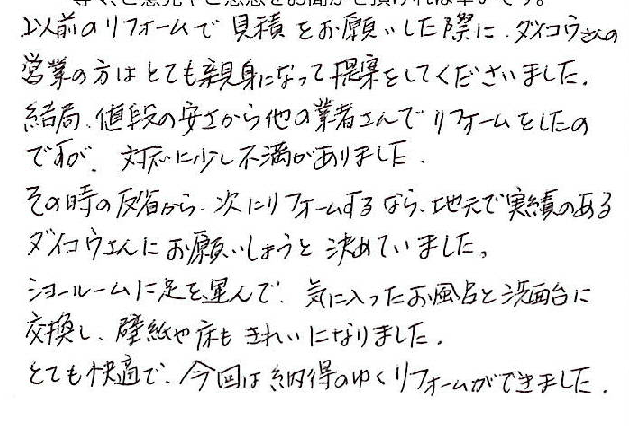 以前のリフォームで見積をお願いした際に、ダイコウさんの
営業の方はとても親身になって提案をしてくださいました。
結局、値段の安さから他の業者さんでリフォームをしたの
ですが、対応に少し不満がありました。
その時の反省から、次にリフォームするなら、地元で実績のある
ダイコウさんにお願いしようと決めていました。
ショールームに足を運んで、気に入ったお風呂と洗面台に
交換し、壁紙や床もきれいになりました。
とても快適で、今回は納得のゆくリフォームができました。